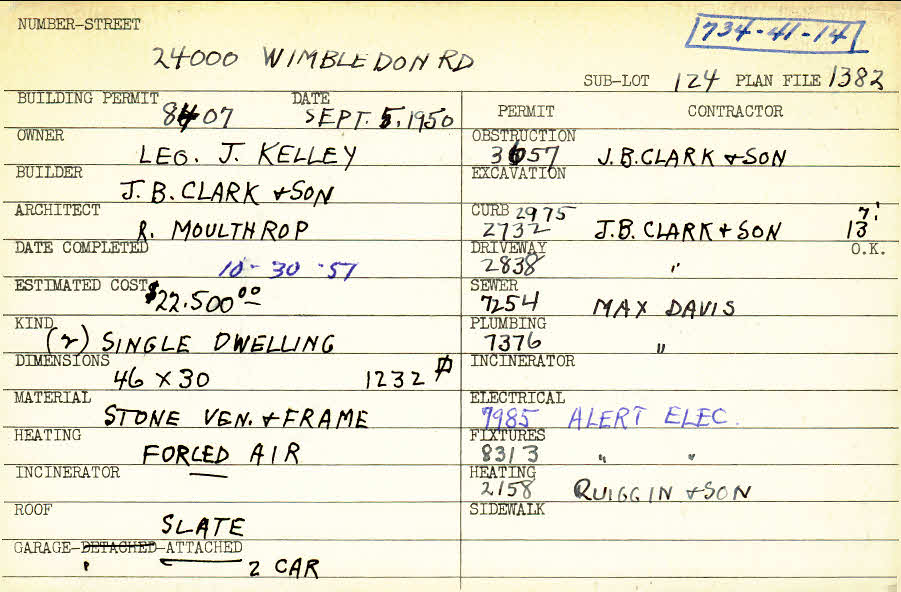 NUMBER-STREET
734-41-14
24000 WIMBLEDON RD
SUB-LOT 124 PLAN FILE 1382
BUILDING PERMIT 8407 DATE SEPT. 5, 1950
OWNER LEO. J. KELLEY
BUILDER J. B. CLARK + SON
ARCHITECT R. MOULTHROP
DATE COMPLETED 10-30-51
ESTIMATED COST $22.500 00
KIND (2) SINGLE DWELLING
DIMENSIONS 46 X 30 1232
MATERIAL STONE VEN. + FRAME
HEATING FORCED AIR
INCINERATOR
ROOF SLATE
GARAGE-DETACHED-ATTACHED
2 CAR
PERMIT CONTRACTOR
OBSTRUCTION
3657 J.B. CLARK + SON
EXCAVATION
CURB 2975 7'
2732 J.B. CLARK + SON 13
DRIVEWAY O.K.
2838 "
SEWER
7254 MAX DAVIS
PLUMBING
7376 "
INCINERATOR
ELECTRICAL
7985 ALERT ELEC.
FIXTURES
8313 " "
HEATING
2158 QUIGGIN + SON
SIDEWALK